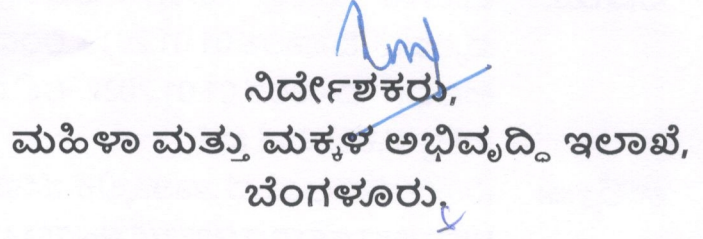 ನಿರ್ದೇಶಕರು,
ಮಹಿಳಾ ಮತ್ತು ಮಕ್ಕಳ ಅಭಿವೃದ್ಧಿ ಇಲಾಖೆ,
ಬೆಂಗಳೂರು.